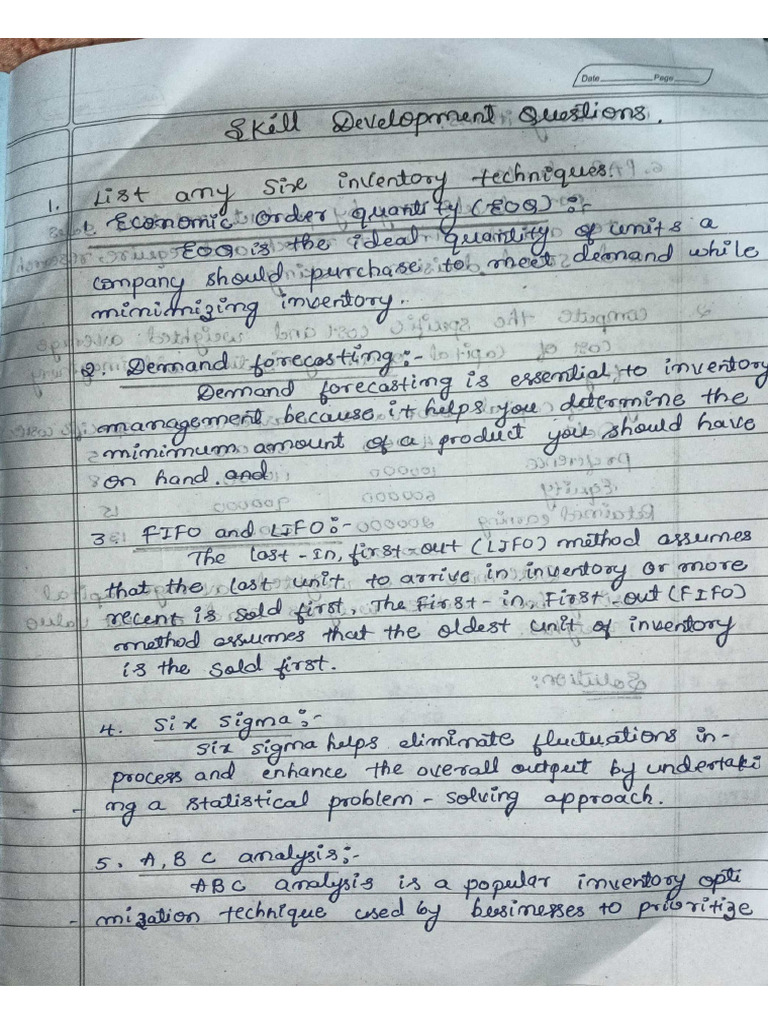 Date Page
Skill Development Questions.
1. List any six inventory techniques.
1. Economic order quantity (EOQ) :-
EOQ is the ideal quantity of units a
company should purchase to meet demand while
minimizing inventory.
2. Demand forecasting :-
Demand forecasting is essential to inventory
management because it helps you determine the
minimum amount of a product you should have
on hand. and
3. FIFO and LIFO :-
The last-in, first-out (LIFO) method assumes
that the last unit to arrive in inventory or more
recent is sold first. The First-in, First-out (FIFO)
method assumes that the oldest unit of inventory
is the sold first.
4. Six Sigma :-
Six sigma helps eliminate fluctuations in-
process and enhance the overall output by undertaki
-ng a statistical problem-solving approach.
5. A, B C analysis :-
ABC analysis is a popular inventory opti
-mization technique used by businesses to prioritize